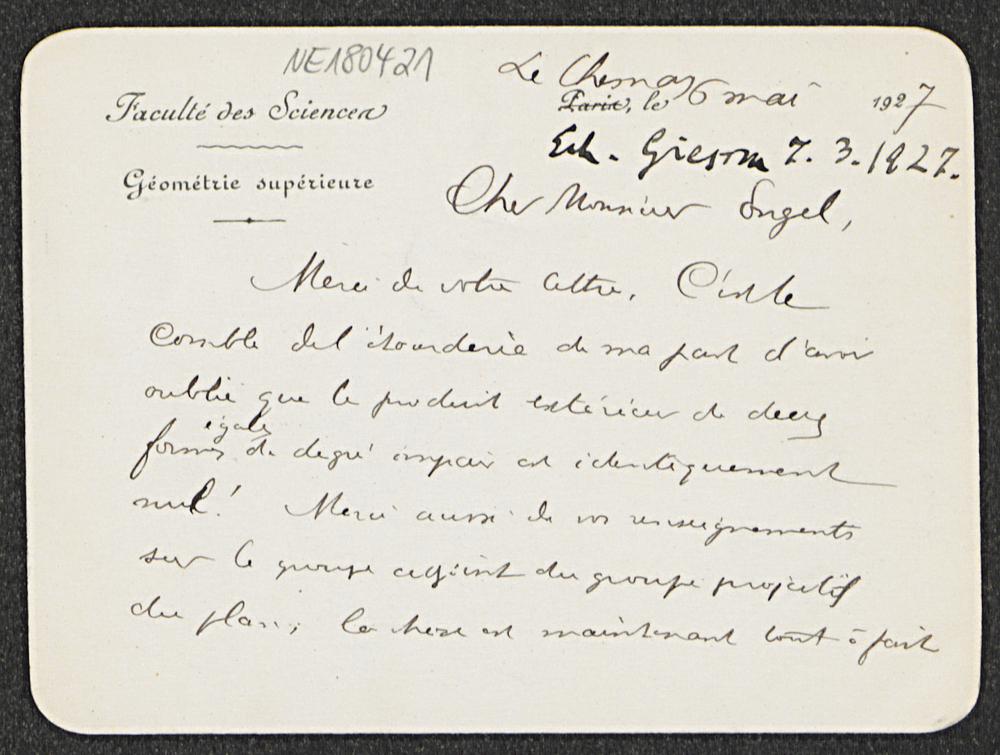 NE180421
Le Chesnay 6 mai
Faculté des Sciences
Paris, le 1927
Erh. Giessen 7. 3. 1927.
Géométrie supérieure
Cher Monsieur Engel,
Merci de votre lettre. C'est le
comble de l'étourderie de ma part d'avoir
oublié que le produit extérieur de deux
égales
formes de degré impair est identiquement
nul! Merci aussi de vos renseignements
sur le groupe adjoint du groupe projectif
du plan; la chose est maintenant tout à fait